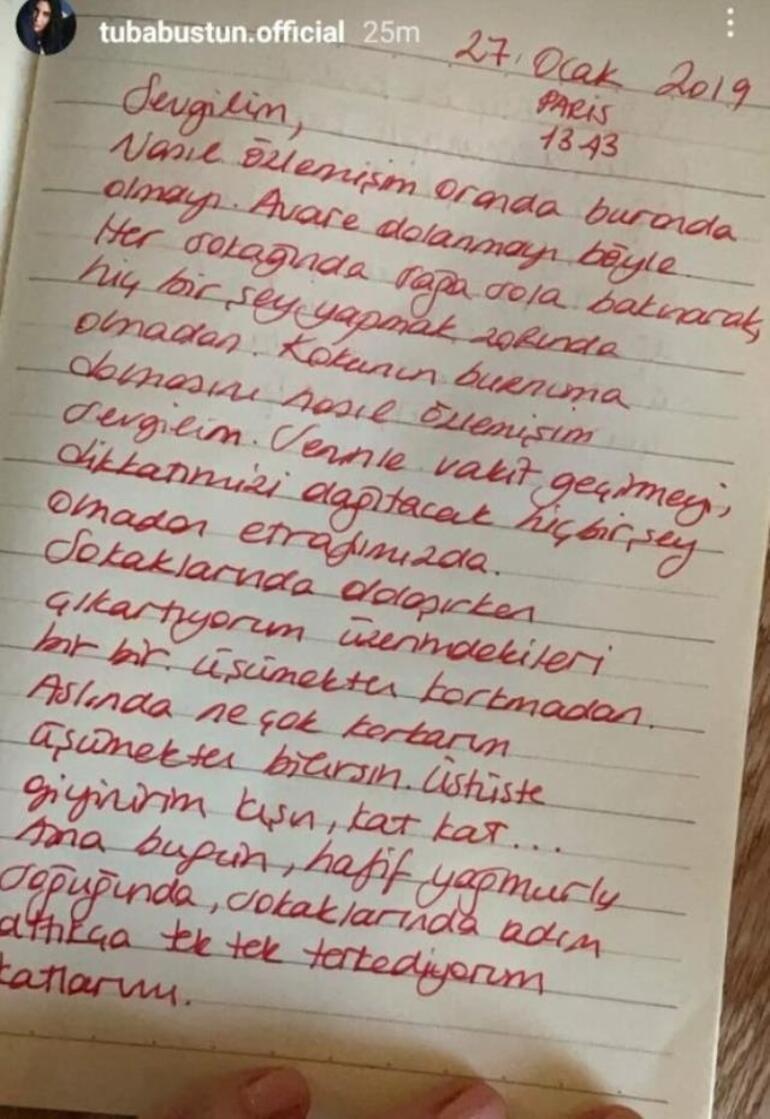 tubabustun.official 25m
27. Ocak 2019
PARİS
13.43
Sevgilim,
Nasıl özlemişim oranda buranda
olmayı. Avare dolanmayı böyle.
Her sokağında sağa sola bakınarak,
hiç bir şey yapmak zorunda
olmadan. Kokunun burnuma
dolmasını nasıl özlemişim
sevgilim. Seninle vakit geçirmeyi,
dikkatimizi dağıtacak hiçbir şey
olmadan etrafımızda.
Sokaklarında dolaşırken
çıkartıyorum üzerimdekileri
bir bir. üşümekten korkmadan.
Aslında ne çok korkarım
üşümekten bilirsin. Üstüste
giyinirim kışın, kat kat...
Ama bugün, hafif yağmurlu
soğuğunda, sokaklarında adım
attıkça tek tek terkediyorum
katlarımı.